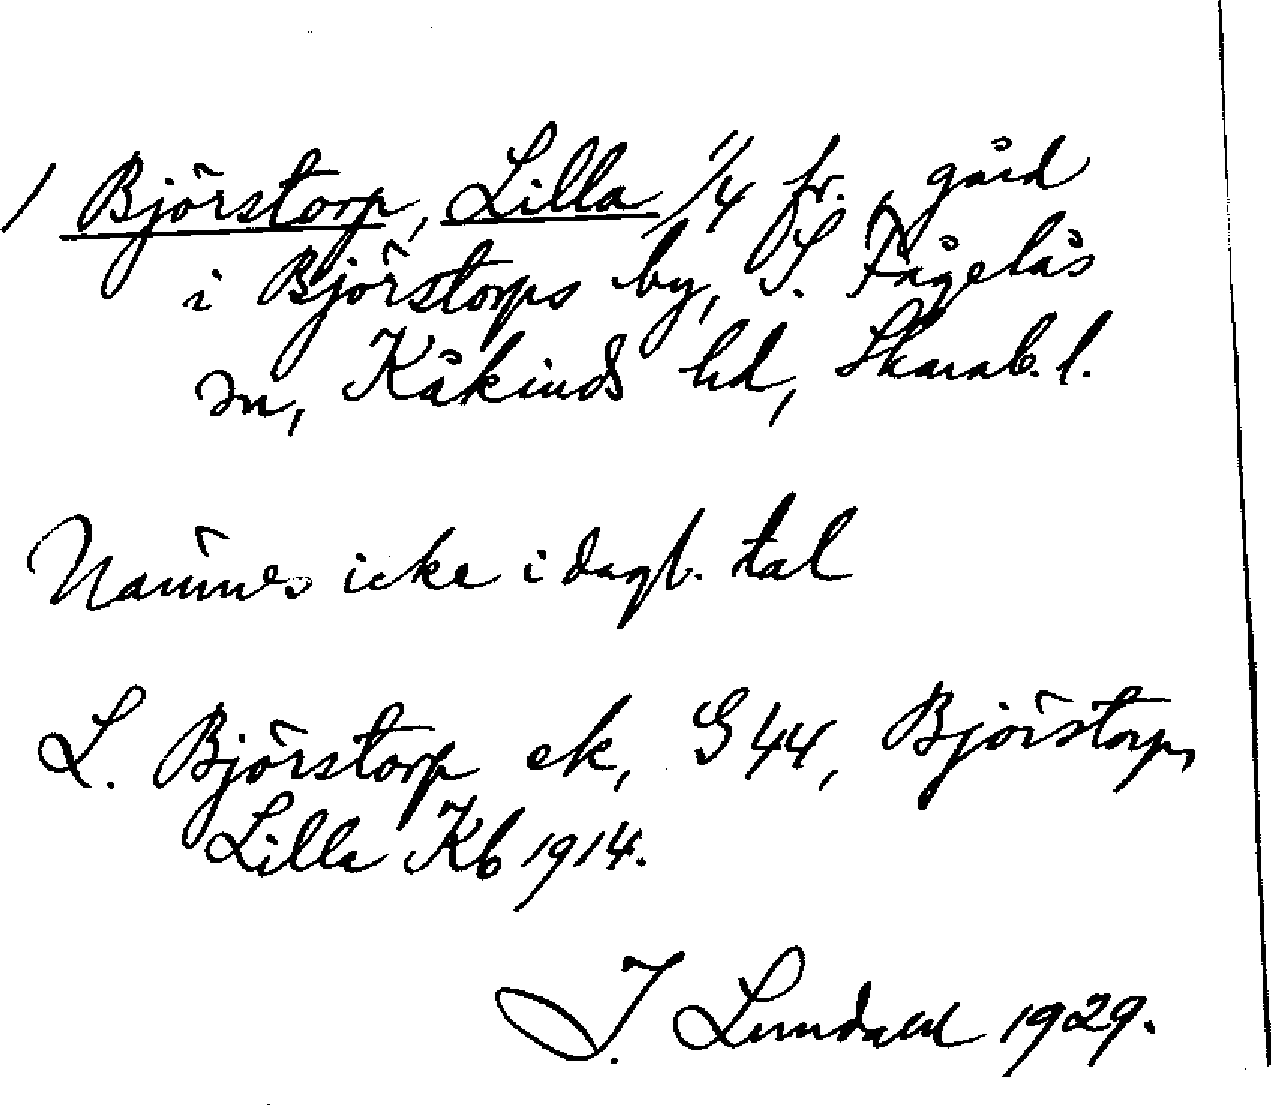 / Björstorp, Lilla 1/4 fr., gård
i Björstorps by, S. Fågelås
sn, Kåkinds hd, Skarab. l.
Nämnes icke i dagl. tal
L. Björstorp ek, G 44, Björstorp,
Lilla Kb 1914.
I. Lundahl 1929.